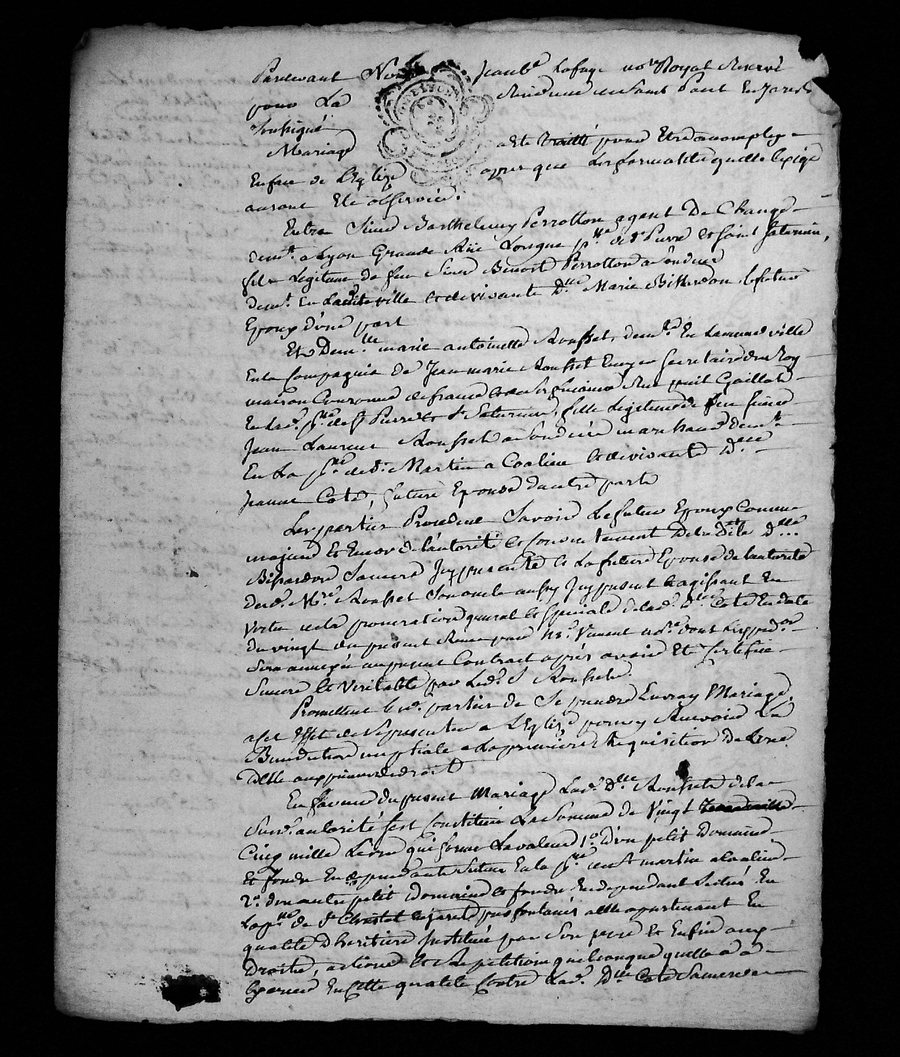 Pardevant Nous Jean Bte Lafaye nore Royal Reservé
pour La Residence de Saint Paul En Jarest
Soussigné
Mariage a Ete traitté pour Etre accomply
En face de L'Eglize apres que Les formalités quelle Exige
auront Eté observées.
Entre Sieur Barthelemy Perrotton agent De Change
demt. a Lyon Grande Rue Longue psse de St Pierre et Saint Saturnin,
fils Legitime de feu Sieur Benoit Perrotton
demt. En Ladite ville et de vivante Dlle Marie Bissardon, le futur
Epoux d'une part
Et Demlle marie antoinette Rousset, demte En La meme ville
En la Compagnie de Jean marie Rousset Ecuyer Secretaire du Roy
maison Couronne de france et de ses finances Rue puit Gaillot
En Lad. psse de St Pierre et St Saturnin, fille Legitime de feu sieur
Jean Laurent Rousset marchand demt
En La psse de St. Martin a Coalieu et de vivante Dlle
Jeanne Coté, future Epouse d'autre part
Les parties Procedent Savoir Le futur Epoux Comme
majeur Et Encor de L'autorité et consentement De ladite Dlle
Bissardon Sa mere Icy presente et La future Epouse de L'autorité
dud. Mre Rousset Son oncle aussy Icy present et agissant En
vertu de la procuration generale et speciale de lad. Dlle Coté En date
du vingt du present Reçue par Me. Vincent nore dont
Sera annexée au present Contract apres avoir Eté Certifiée
Sincere Et Veritable par Led. Sr Rousset.
Promettent les d. parties de Se prendre En vray Mariage.
a cet Effet de Se presenter a L'Eglize pour y Recevoir La
Benediction nuptiale a La premiere Requisition De L'une
d'elle
En faveur du present Mariage Lad. Dlle Rousset de la
Susd. autorité s'est Constitué La Somme de Vingt
Cinq mille Livres qui forme La valeur 1° D'un petit Domaine
Et fonds En dependants Situés En la psse Saint martin a Coalieu
2° d'un autre petit Domaine et fonds En dependant Situé En
La psse de St Christot En Jarest a Elle apartenant En
qualité D'heritiere Instituée par Son pere Et Enfin aux
Droits, actions Et Repetitions quelconques quelle a a
Exercer En Cette qualité Contre Lad. Dlle Coté Sa mere